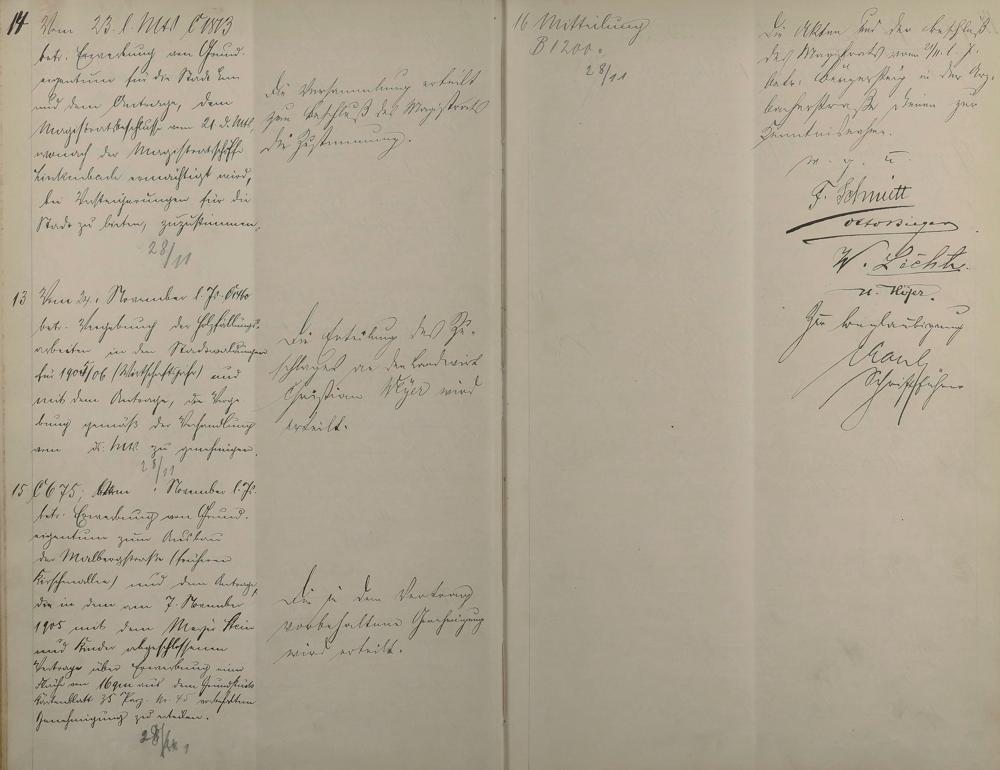 14 Vom 23. l. Mts. C 1813
betr. Erwerbung von Grund-
eigentum für die Stadt Ems
und dem Antrage, dem
Magistratsbeschlusse vom 21. d. Mts.,
wonach der Magistratsschöffe
Linkenbach ermächtigt wird,
bei Versteigerungen für die
Stadt zu bieten, zuzustimmen.
28/11
Die Versammlung erteilt
zum Beschluß des Magistrats
die Zustimmung.
13 Vom November l. Js.
betr. Vergebung der Holzfällungs-
arbeiten in den Stadtwaldungen
für 1905/06 (Wirtschaftsjahr) und
mit dem Antrage, die Verge-
bung gemäß der Verhandlung
vom ds. Mts. zu genehmigen.
28/11
Die Erteilung des Zu-
schlages an den Landwirt
Christian Meyer wird
erteilt.
15 C 675, vom November l. Js.
betr. Erwerbung von Grund-
eigentum zum Ausbau
der Malbergstraße (früheren
Kirschenallee) und dem Antrage,
die in dem am 7. November
1905 mit dem Meyer Stein
und Kinder abgeschlossenen
Vertrage über Erwerbung einer
Fläche von 16 qm aus dem Grundstück
Kartenblatt 35 Parz. Nr. 45 vorbehaltene
Genehmigung zu erteilen.
28/11
Die in dem Vertrag
vorbehaltene Genehmigung
wird erteilt.
16 Mitteilung
B 1200.
28/11
Die Akten und der Beschluß
des Magistrats vom l. J.
betr. Bürgersteig in der
straße dienen zur
Kenntnisnahme.
v. g. u.
F. Schmitt
Otto Bieger
W. Licht
Zur Beglaubigung
Schriftführer